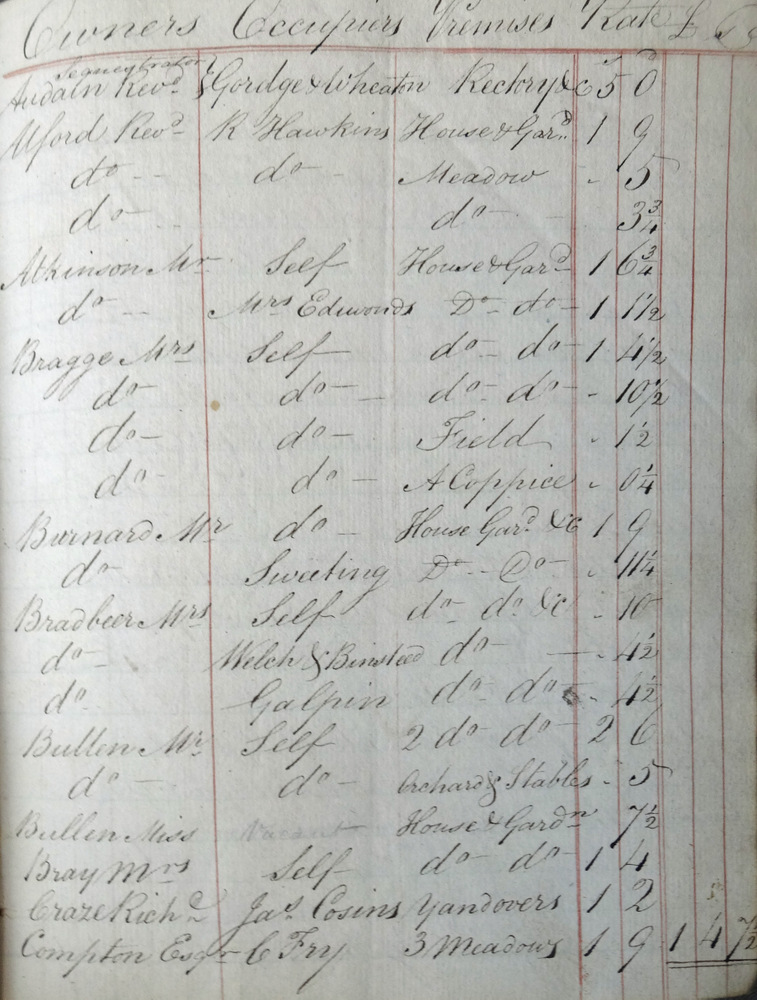 Owners Occupiers Premises Rate £
Sequestrator
Audain Revd & Gordge & Wheaton Rectory &c 5 0
Alford Revd R Hawkins House & Gard 1 9
do do Meadow - 5
do do 3¾
Atkinson Mr Self House & Gard 1 6¾
do Mrs Edwards Do do 1 1½
Bragge Mrs Self do do 1 4½
do do do do - 10½
do do Field - 1½
do do A Coppice - 0¼
Burnard Mr do House Gard &c 1 9
do Sweeting Do Do - 11¼
Bradbeer Mrs Self do do &c - 10
do Welch & Binsteed do - 4½
do Galpin do do - 4½
Bullen Mr Self 2 do do 2 6
do do Orchard & Stables - 5
Bullen Miss Vacant House & Gardn 7½
Bray Mrs Self do do 1 4
Craze Richd Jas Cosins Yandovers 1 2
Compton Esqr C Fry 3 Meadows 1 9 1 4 7½